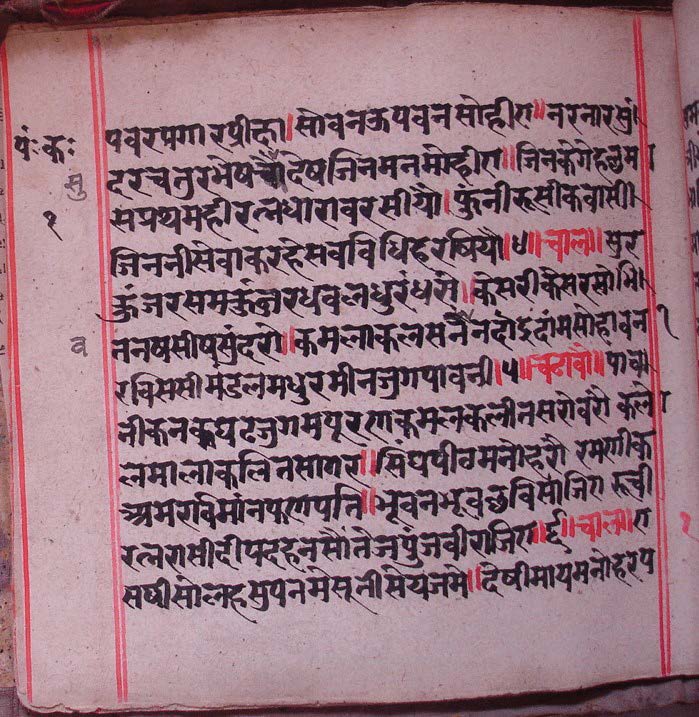 पवरपगारप्रीक्षा॥सोवनऊपवनसोहीए॥नरनारसुं।
दरचतुरभेषचौदेषजिनमनमोहीए॥जिनकगेहछम
सप्रथमहीरत्नधारावरसीयौ।फुंनीरूसीकवासी।
जिननीसेवाकरहेसवविधिहरषियौ॥४॥चाल॥सुर
कुंजरसमकुंजरधवलधुरंधरो॥केसरीकेसरसोभि।
तनषसीषसुंदरो॥कमलाकलसनैनदोइदांमसोहावन
रविससीमंडलमधुरमीनजुगपावनी।५॥चढावौ॥पाव।
नीकनकघटजुगमपूरणकमलकलीनसरोवरो कले
लमालाकलिनसागर॥सिंघपीठमनोहरो रमणीक
अमरविमांनफणपति॥भूवनभूवछविसाजिए रूची
रत्नरासीदीपदहनसोतेजपुंजवीराजिए॥६॥चाल॥ए
सषीसोलहसुपनमेसूनीसेयजमे॥देषीमायमनोहरप
पंः कः
सु
१
व
१
२